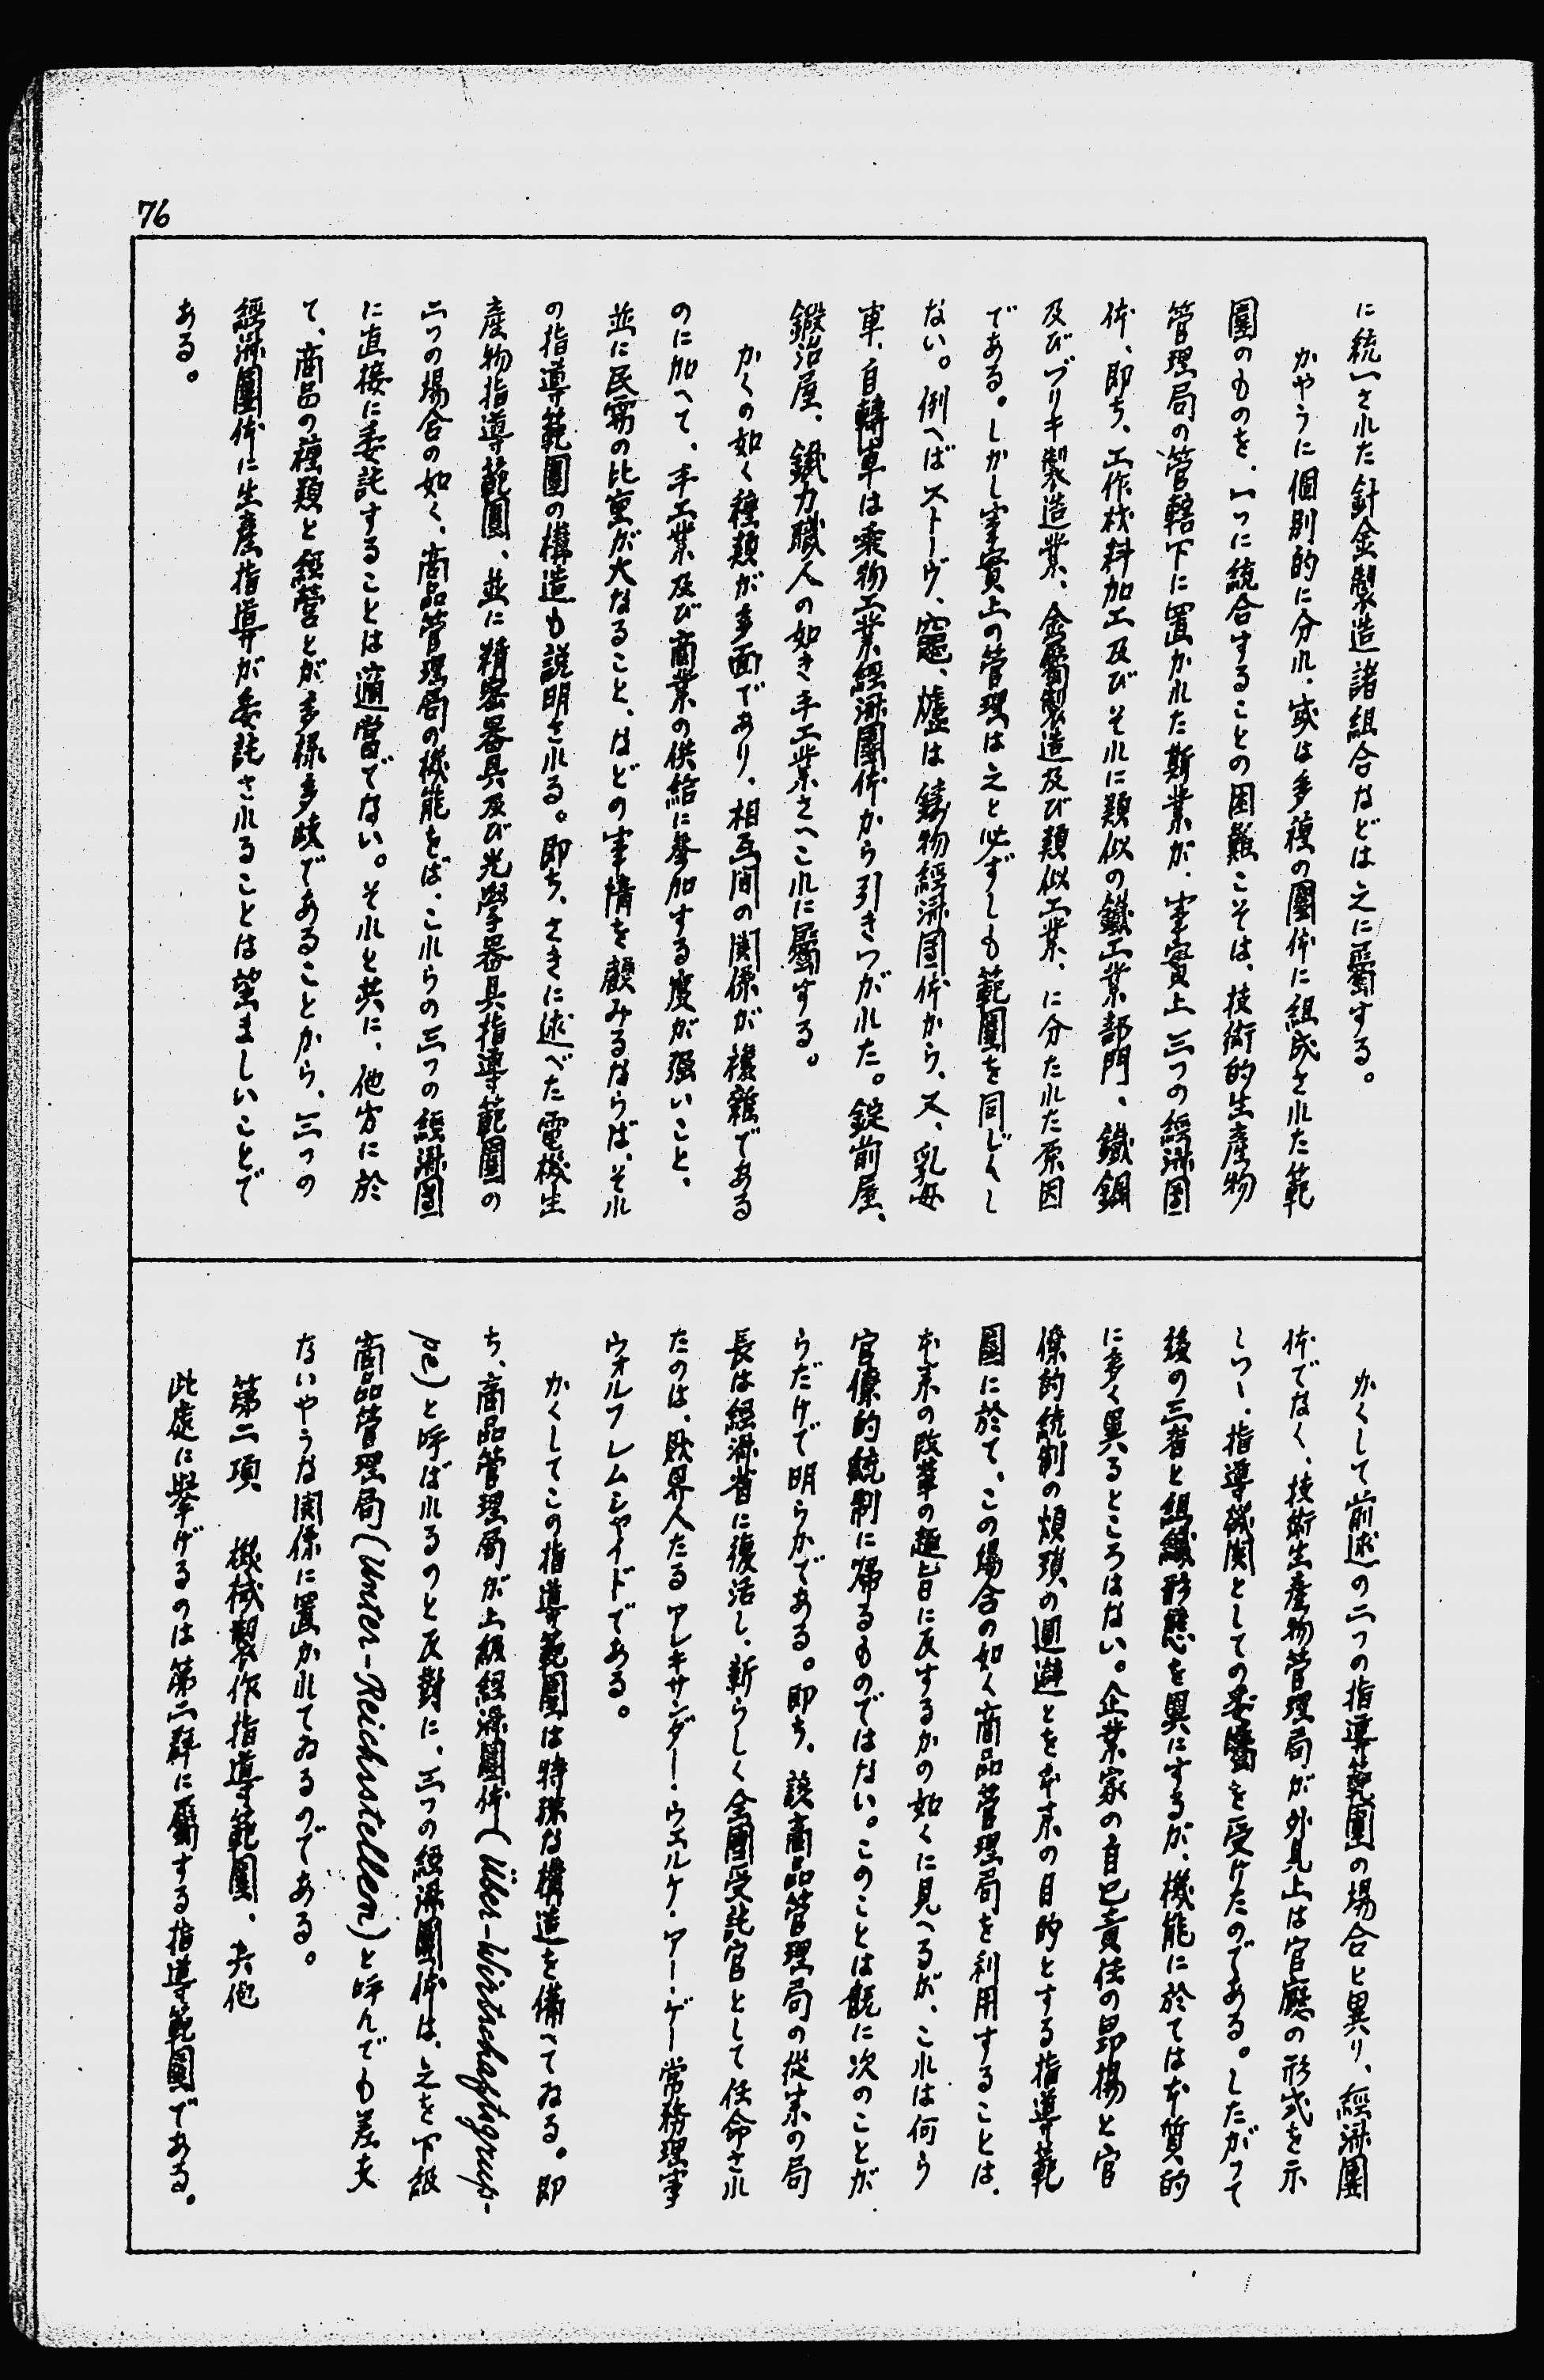 76
に統一された針金製造諸組合などは之に屬する。
かやうに個別的に分れ、或は多種の團体に組成された範
圍のものを、一つに統合することの困難こそは、技術的生産物
管理局の管轄下に置かれた斯業が、事實上三つの經濟団
体、即ち、工作材料加工及びそれに類似の鐵工業部門、鐵鋼
及びブリキ製造業、金屬製造及び類似工業、に分たれた原因
である。しかし事實上の管理は之と必ずしも範圍を同じくし
ない。例へばストーヴ、竈、爐は鑄物經濟団体から、又、乳母
車、自轉車は乘物工業經濟團体から引きつがれた。錠前屋、
鍛冶屋、鐵力職人の如き手工業さへこれに屬する。
かくの如く種類が多面であり、相互間の関係が複雜である
のに加へて、手工業及び商業の供給に參加する度が强いこと、
並に民需の比重が大なること、などの事情を顧みるならば、それ
の指導範圍の構造も説明される。即ち、さきに述べた電機生
産物指導範圍、並に精密器具及び光學器具指導範圍の
二つの場合の如く、商品管理局の機能をば、これらの三つの經濟団
に直接に委託することは適當でない。それと共に、他方に於
て、商品の種類と經營とが多樣多岐であることから、三つの
經濟團体に生産指導が委託されることは望ましいことで
ある。
かくして前述の二つの指導範圍の場合と異り、經濟團
体でなく、技術生産物管理局が外見上は官廳の形式を示
しつゝ、指導機関としての委囑を受けたのである。したがつて
後の三者と組織形態を異にするが、機能に於ては本質的
に多く異るところはない。企業家の自己責任の昂揚と官
僚的統制の煩瑣の囘避とを本来の目的とする指導範
圍に於て、この場合の如く商品管理局を利用することは、
本来の改革の趣旨に反するかの如くに見へるが、これは何ら
官僚的統制に帰るものではない。このことは既に次のことが
らだけで明らかである。即ち、該商品管理局の從来の局
長は經濟省に復活し、新らしく全團受託官として任命され
たのは、財界人たるアレキサンダー・ウエルケ・アー・ゲー常務理事
ウォルフレムシャイドである。
かくしてこの指導範圍は特殊な構造を備へてゐる。即
ち、商品管理局が上級經濟團体(Über-Wirtschaftsgrup-
pe)と呼ばれるのと反對に、三つの經濟團体は、之を下級
商品管理局(Unter-Reichsstellen)と呼んでも差支
ないやうな関係に置かれてゐるのである。
第二項 機械製作指導範圍、其他
此處に擧げるのは第二群に屬する指導範圍である。